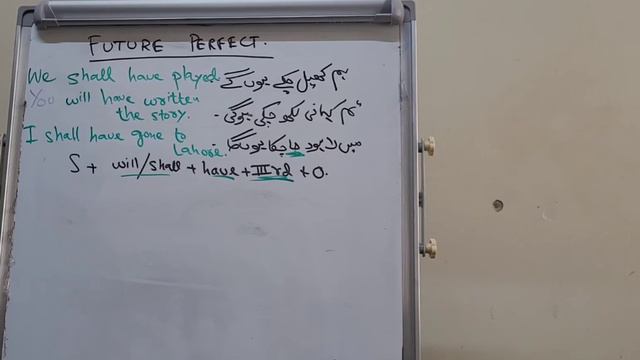 FUTURE PERFECT.
We shall have played. ہم کھیل چکے ہوں گے
You will have written the story. تم کہانی لکھ چکی ہوگی۔
I shall have gone to Lahore. میں لاہور جا چکا ہوں گا۔
S + will/shall + have + IIIrd + O.